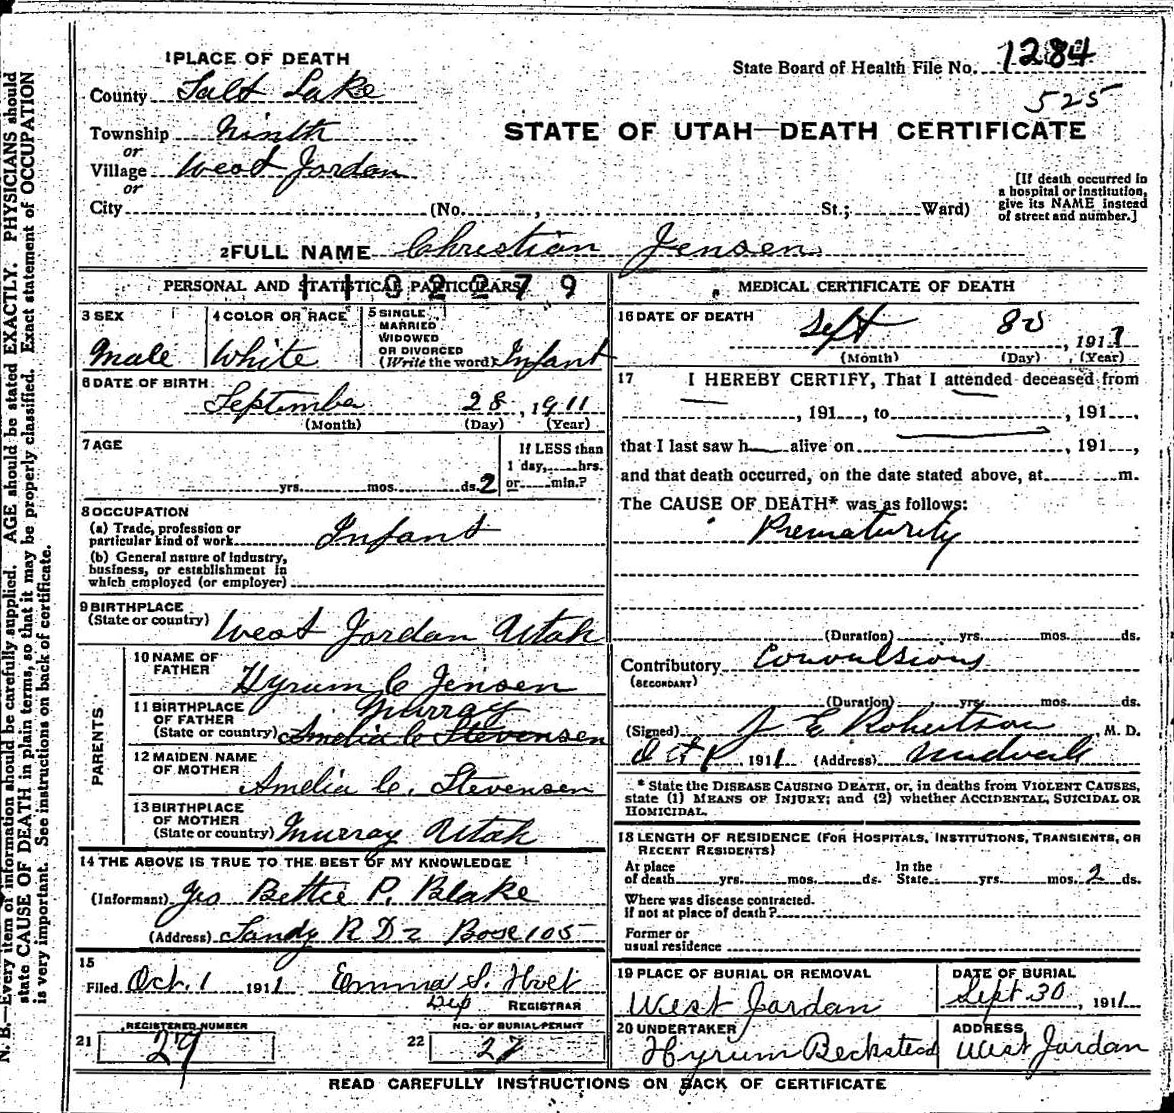 1 PLACE OF DEATH
State Board of Health File No. 1284
County Salt Lake
525
Township Ninth
STATE OF UTAH—DEATH CERTIFICATE
or
Village West Jordan
or
City (No. , St.; Ward)
[If death occurred in
a hospital or institution,
give its NAME instead
of street and number.]
2 FULL NAME Christian Jensen
PERSONAL AND STATISTICAL PARTICULARS
3 SEX
Male
4 COLOR OR RACE
White
5 SINGLE,
MARRIED
WIDOWED
OR DIVORCED
(Write the word) Infant
6 DATE OF BIRTH
September 28, 1911
(Month) (Day) (Year)
7 AGE
If LESS than
1 day, hrs.
or min.?
yrs. mos. ds. 2
8 OCCUPATION
(a) Trade, profession or
particular kind of work Infant
(b) General nature of industry,
business, or establishment in
which employed (or employer)
9 BIRTHPLACE
(State or country) West Jordan Utah
PARENTS
10 NAME OF
FATHER Hyrum C Jensen
11 BIRTHPLACE
OF FATHER Murray
(State or country) Amelia C Stevensen
12 MAIDEN NAME
OF MOTHER Amelia C. Stevensen
13 BIRTHPLACE
OF MOTHER
(State or country) Murray Utah
14 THE ABOVE IS TRUE TO THE BEST OF MY KNOWLEDGE
(Informant) Bettie P. Blake
(Address) Sandy R D 2 Box 105
15
Filed Oct. 1 1911 Emma S.
Dep REGISTRAR
21 REGISTERED NUMBER
29
22 NO. OF BURIAL PERMIT
27
MEDICAL CERTIFICATE OF DEATH
16 DATE OF DEATH
Sept 30, 1911
(Month) (Day) (Year)
17 I HEREBY CERTIFY, That I attended deceased from
, 191 , to , 191 ,
that I last saw h alive on , 191 ,
and that death occurred, on the date stated above, at m.
The CAUSE OF DEATH* was as follows:
Prematurity
(Duration) yrs. mos. ds.
Contributory Convulsions
(SECONDARY)
(Duration) yrs. mos. ds.
(Signed) J E Robertson, M. D.
Oct 1, 1911 (Address) Midvale
* State the DISEASE CAUSING DEATH, or, in deaths from VIOLENT CAUSES,
state (1) MEANS OF INJURY; and (2) whether ACCIDENTAL, SUICIDAL OR
HOMICIDAL.
18 LENGTH OF RESIDENCE (FOR HOSPITALS, INSTITUTIONS, TRANSIENTS, OR
RECENT RESIDENTS)
At place In the
of death yrs. mos. ds. State yrs. mos. 2 ds.
Where was disease contracted.
if not at place of death?
Former or
usual residence
19 PLACE OF BURIAL OR REMOVAL
West Jordan
DATE OF BURIAL
Sept 30, 1911
20 UNDERTAKER
Hyrum Beckstead
ADDRESS
West Jordan
READ CAREFULLY INSTRUCTIONS ON BACK OF CERTIFICATE
N. B.—Every item of information should be carefully supplied. AGE should be stated EXACTLY. PHYSICIANS should
state CAUSE OF DEATH in plain terms, so that it may be properly classified. Exact statement of OCCUPATION
is very important. See instructions on back of certificate.